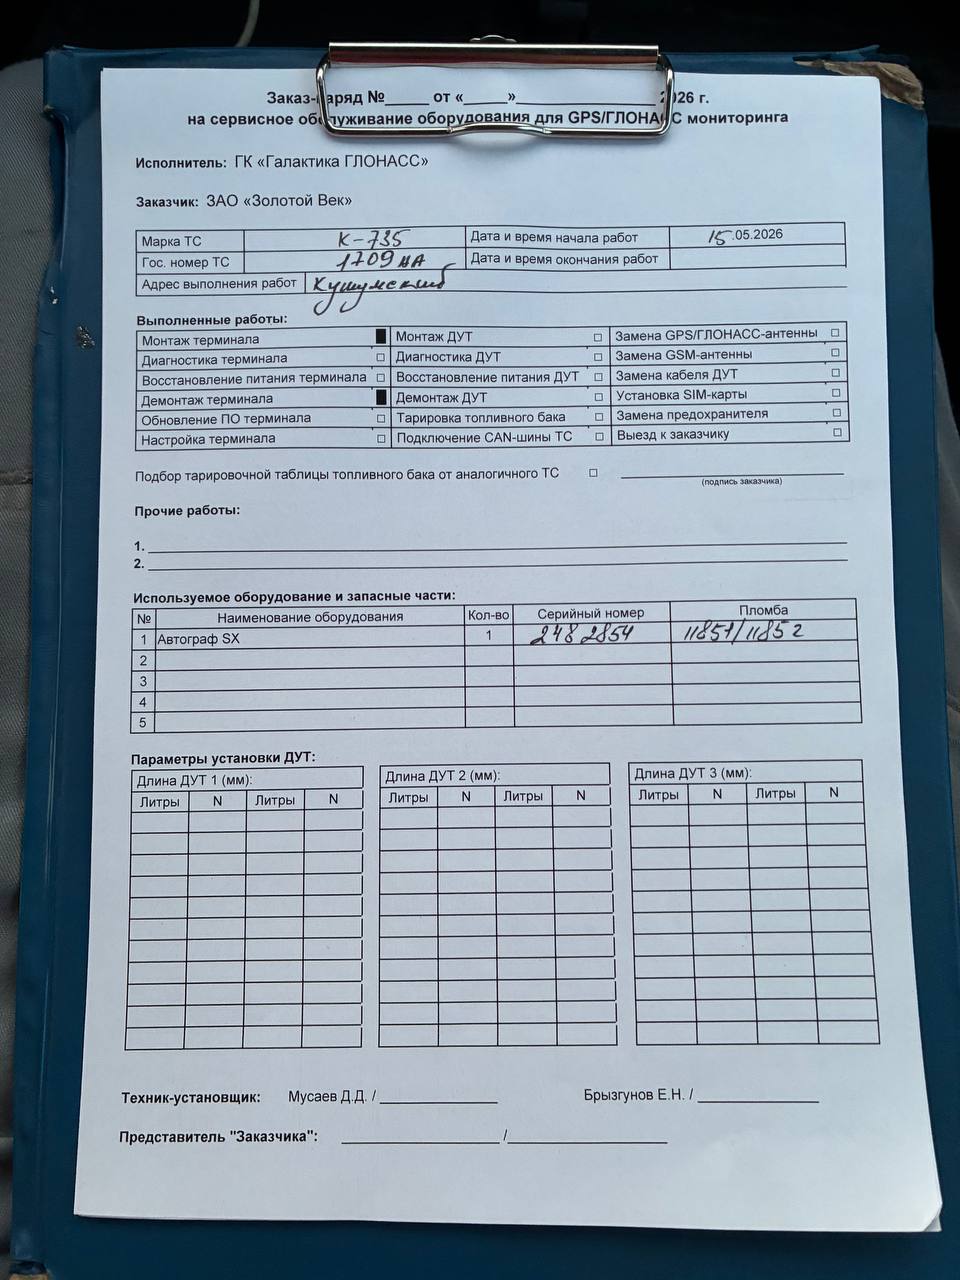 Заказ-наряд №_____ от «_____»________________ 2026 г.
на сервисное обслуживание оборудования для GPS/ГЛОНАСС мониторинга
Исполнитель: ГК «Галактика ГЛОНАСС»
Заказчик: ЗАО «Золотой Век»
Марка ТС К-735 Дата и время начала работ 15.05.2026
Гос. номер ТС 1709 НА Дата и время окончания работ
Адрес выполнения работ Кушумский
Выполненные работы:
Монтаж терминала ■ Монтаж ДУТ □ Замена GPS/ГЛОНАСС-антенны □
Диагностика терминала □ Диагностика ДУТ □ Замена GSM-антенны □
Восстановление питания терминала □ Восстановление питания ДУТ □ Замена кабеля ДУТ □
Демонтаж терминала ■ Демонтаж ДУТ □ Установка SIM-карты □
Обновление ПО терминала □ Тарировка топливного бака □ Замена предохранителя □
Настройка терминала □ Подключение CAN-шины ТС □ Выезд к заказчику □
Подбор тарировочной таблицы топливного бака от аналогичного ТС □ ____________________
(подпись заказчика)
Прочие работы:
1.
2.
Используемое оборудование и запасные части:
№ Наименование оборудования Кол-во Серийный номер Пломба
1 Автограф SX 1 2482854 11851/11852
2
3
4
5
Параметры установки ДУТ:
Длина ДУТ 1 (мм): Длина ДУТ 2 (мм): Длина ДУТ 3 (мм):
Литры N Литры N Литры N Литры N Литры N Литры N
Техник-установщик: Мусаев Д.Д. / ______________ Брызгунов Е.Н. / ______________
Представитель "Заказчика": ___________________ /___________________